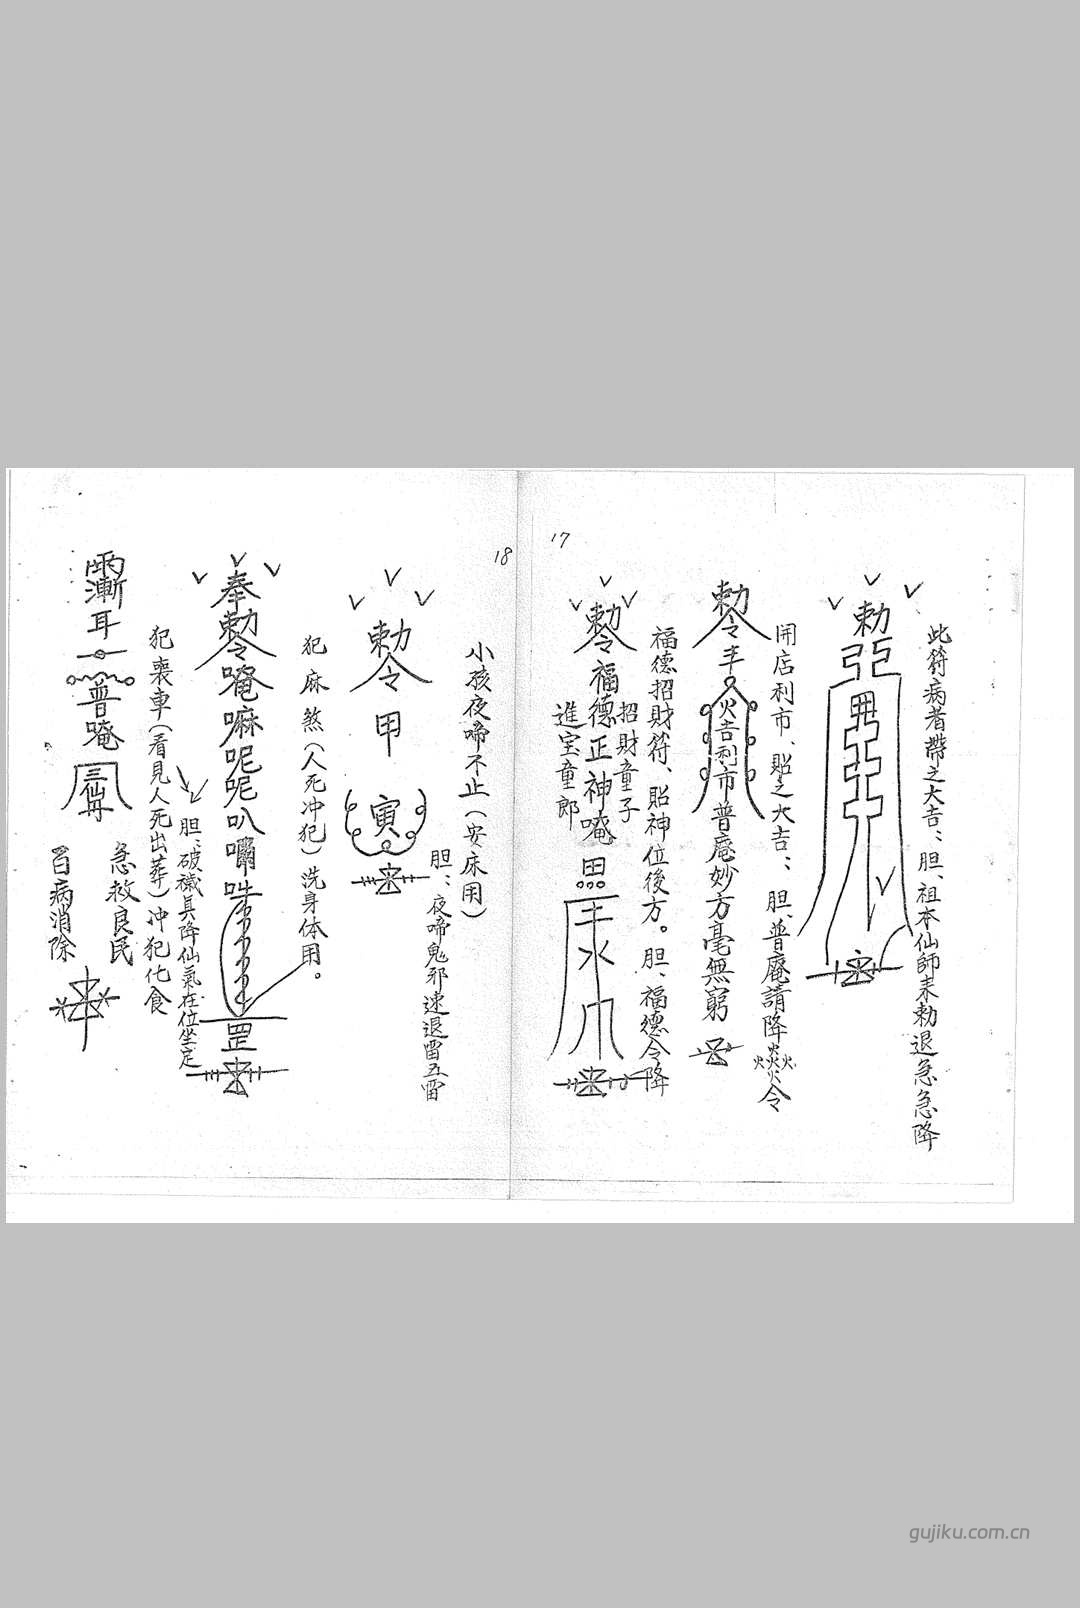 17
此符病者帶之大吉：胆、祖本仙師來勅退急急降
勅
開店利市、貼之大吉：胆、普庵請降火炎炎火令
勅令
火吉利市普庵妙方毫無窮
福德招財符、貼神位後方。胆、福德令降
勅令福德正神唵
招財童子
進宝童郎
18
小孩夜啼不止（安床用）
胆：夜啼鬼邪速退雷五雷
勅令甲寅
犯麻煞（人死冲犯）洗身体用。
奉勅令唵嘛呢呢叭
罡
胆：破穢具降仙氣在位坐定
犯喪車（看見人死出葬）冲犯化食
耳
普唵
三仙丹
急救良民
百病消除
gujiku.com.cn